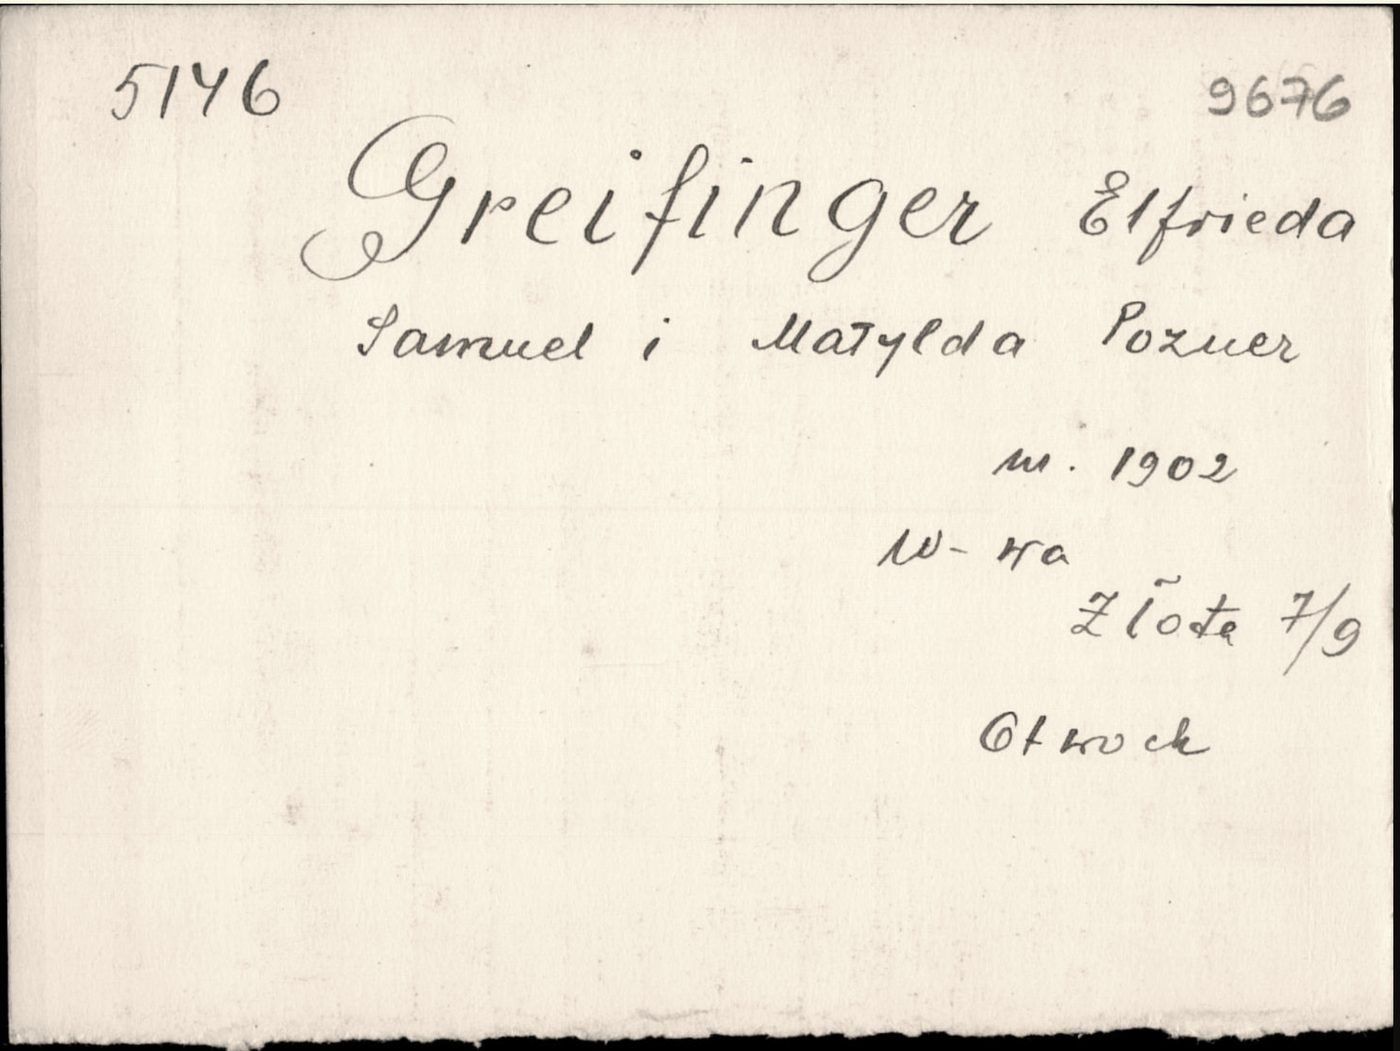 5146 9676
Greifinger Elfrieda
Samuel i Matylda Pozner
ur. 1902
W-wa
Złota 7/9
Otwock